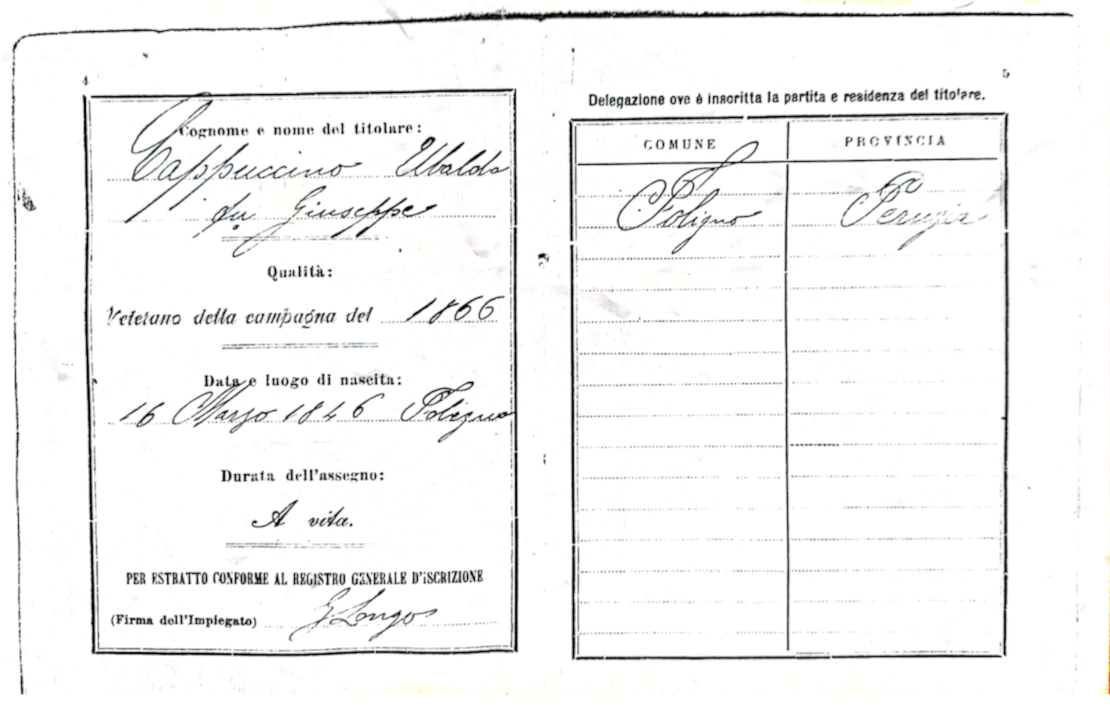 4
Cognome e nome del titolare:
Cappuccino Ubaldo
fu Giuseppe
Qualità:
Veterano della campagna del 1866
Data e luogo di nascita:
16 Marzo 1846 Foligno
Durata dell'assegno:
A vita.
PER ESTRATTO CONFORME AL REGISTRO GENERALE D'ISCRIZIONE
(Firma dell'Impiegato) G. Longo
5
Delegazione ove è inscritta la partita e residenza del titolare.
COMUNE PROVINCIA
Foligno Perugia